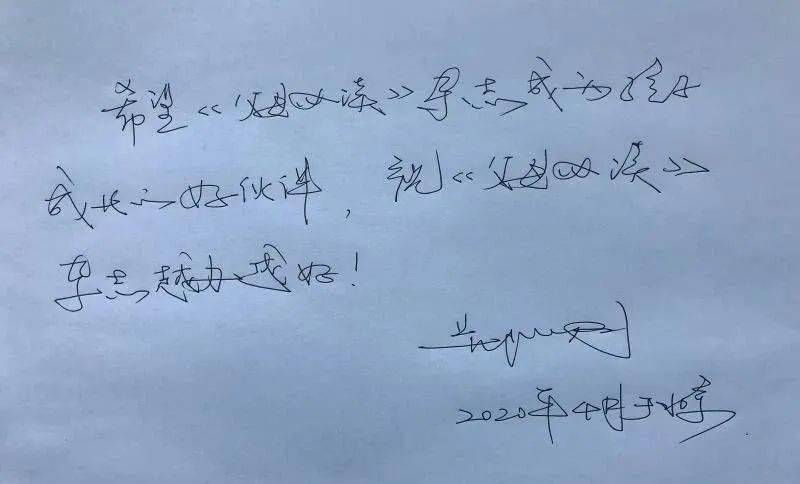 希望《父母必读》杂志成为孩子
成长的好伙伴，祝《父母必读》
杂志越办越好！
2020年4月于北京